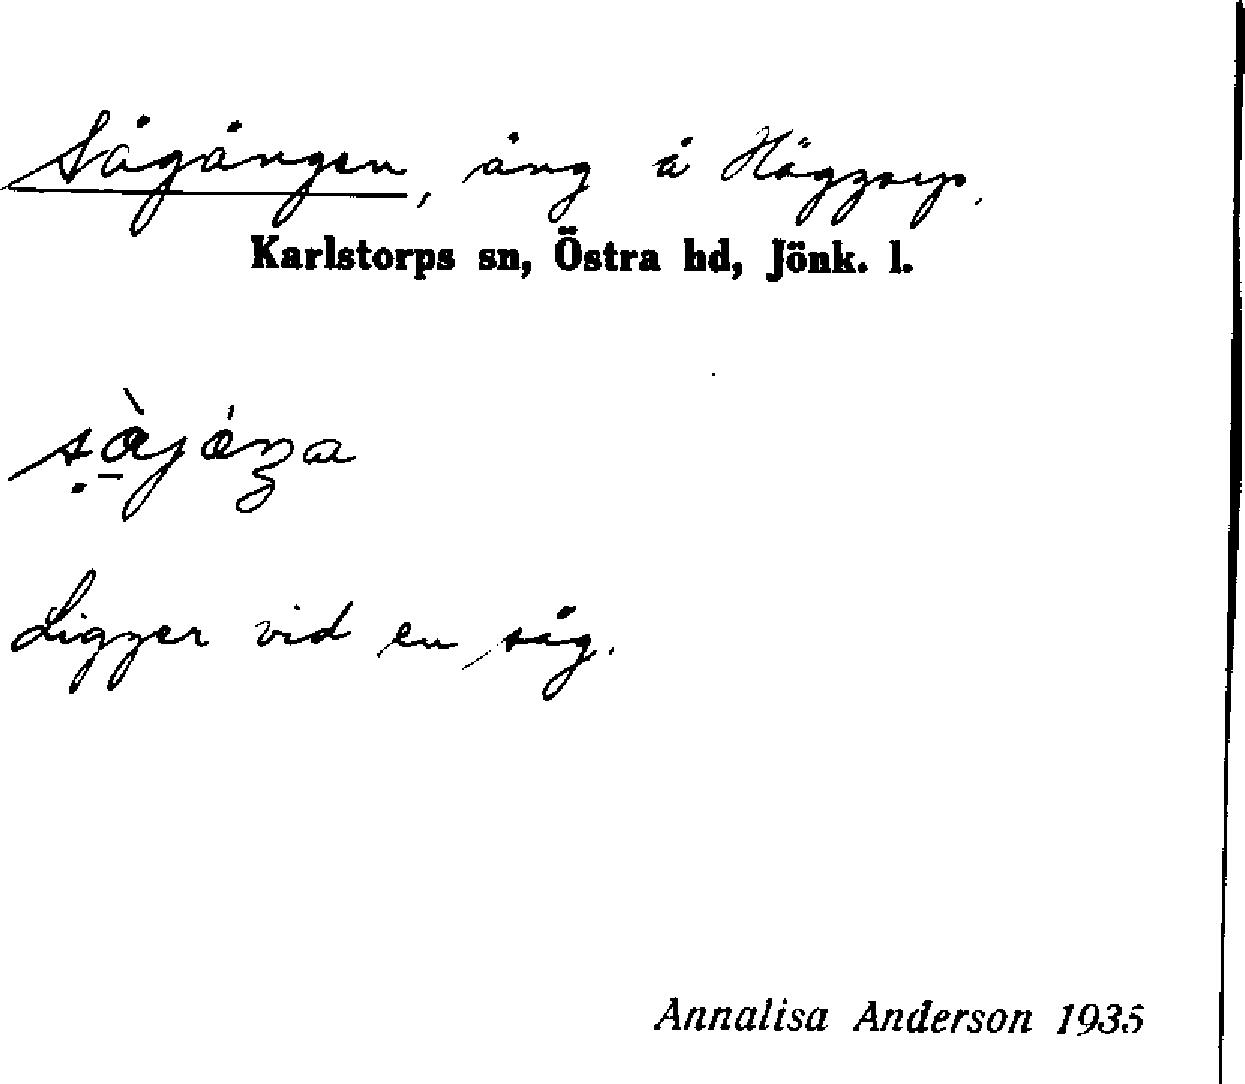 Sågängen, äng å Häggtorp.
Karlstorps sn, Östra hd, Jönk. l.
Ligger vid en såg.
Annalisa Anderson 1935